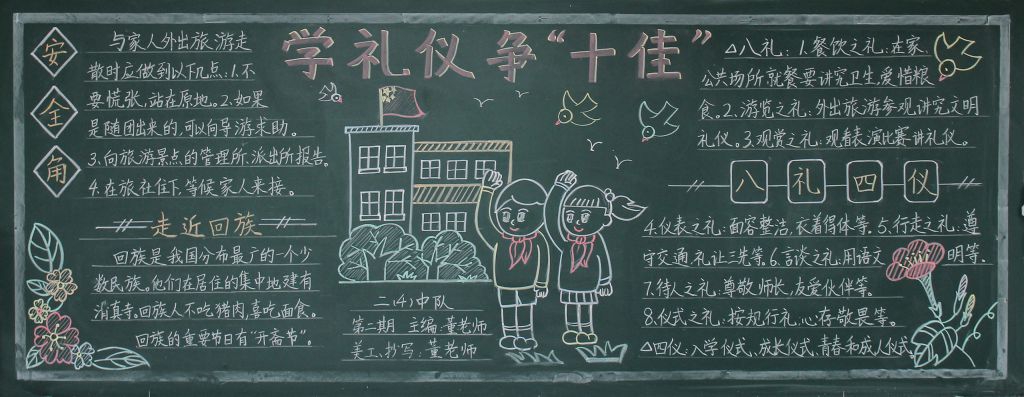 学礼仪争“十佳”
安全角
与家人外出旅游走
散时应做到以下几点:1.不
要慌张,站在原地。2.如果
是随团出来的,可以向导游求助。
3.向旅游景点的管理所、派出所报告。
4.在旅社住下,等候家人来接。
走近回族
回族是我国分布最广的一个少
数民族。他们在居住的集中地建有
清真寺。回族人不吃猪肉,喜吃面食。
回族的重要节日有“开斋节”。
二(4)中队
第二期 主编:董老师
美工、抄写:董老师
△八礼:1.餐饮之礼:在家、
公共场所就餐要讲究卫生,爱惜粮
食。2.游览之礼:外出旅游参观讲究文明
礼仪。3.观赏之礼:观看表演比赛讲礼仪。
八礼四仪
4.仪表之礼:面容整洁,衣着得体等.5.行走之礼:遵
守交通,礼让三先等.6.言谈之礼:用语文明等.
7.待人之礼:尊敬师长,友爱伙伴等。
8.仪式之礼:按规行礼,心存敬畏等。
△四仪:入学仪式,成长仪式,青春和成人仪式